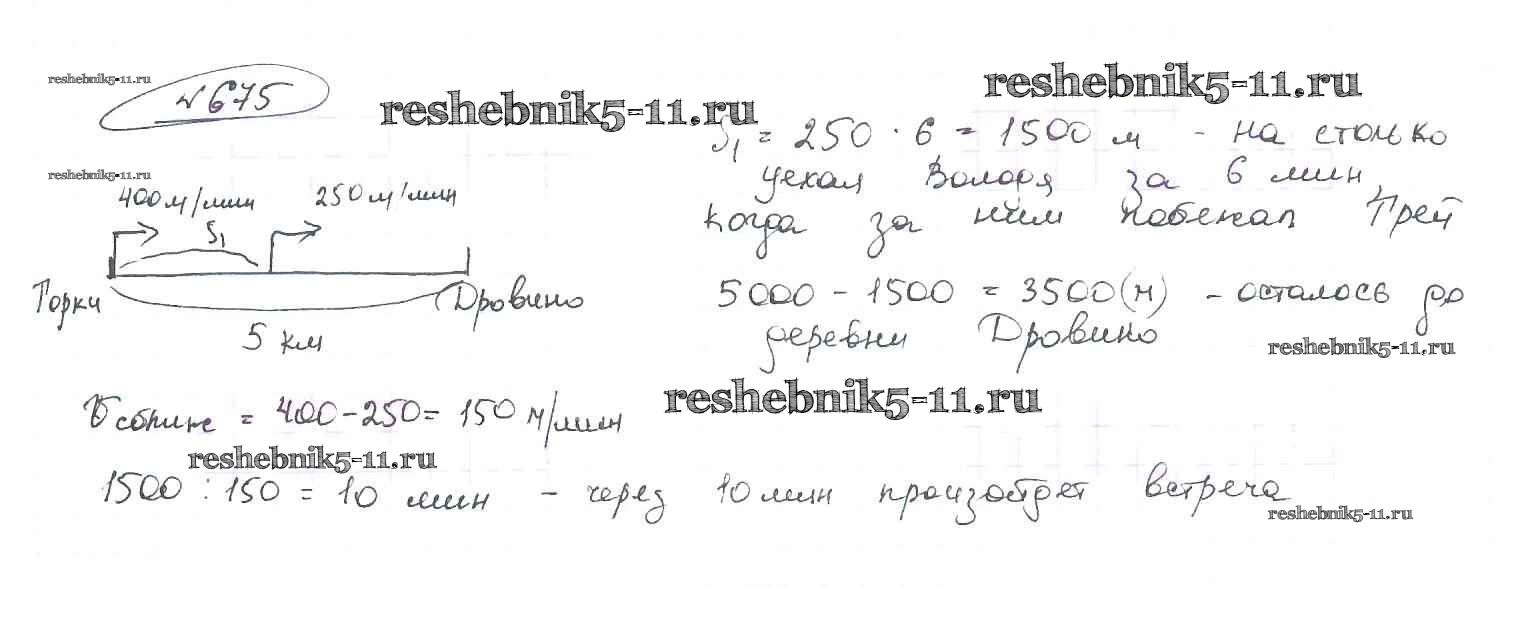 reshebnik5-11.ru
№675
reshebnik5-11.ru
reshebnik5-11.ru
S₁ = 250 · 6 = 1500 м - на столько
уехал Володя за 6 мин,
когда за ним побежал Грей
reshebnik5-11.ru
400 м/мин 250 м/мин
S₁
Горки Дровино
5 км
5000 - 1500 = 3500 (м) - осталось до
деревни Дровино
reshebnik5-11.ru
= 400 - 250 = 150 м/мин
reshebnik5-11.ru
reshebnik5-11.ru
1500 : 150 = 10 мин - через 10 мин произойдет встреча
reshebnik5-11.ru